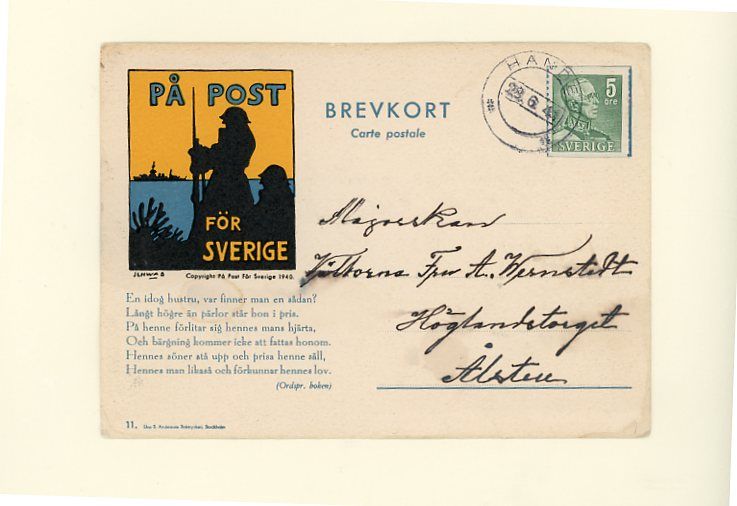 PÅ POST
FÖR
SVERIGE
Copyright På Post För Sverige 1940.
BREVKORT
Carte postale
5
öre
SVERIGE
En idog hustru, var finner man en sådan?
Långt högre än pärlor står hon i pris.
På henne förlitar sig hennes mans hjärta,
Och bärgning kommer icke att fattas honom.
Hennes söner stå upp och prisa henne säll,
Hennes man likaså och förkunnar hennes lov.
(Ordspr. boken)
11. Stockholm
Majorskan
Fru A. Wernstedt
Höglandstorget
Ålsten